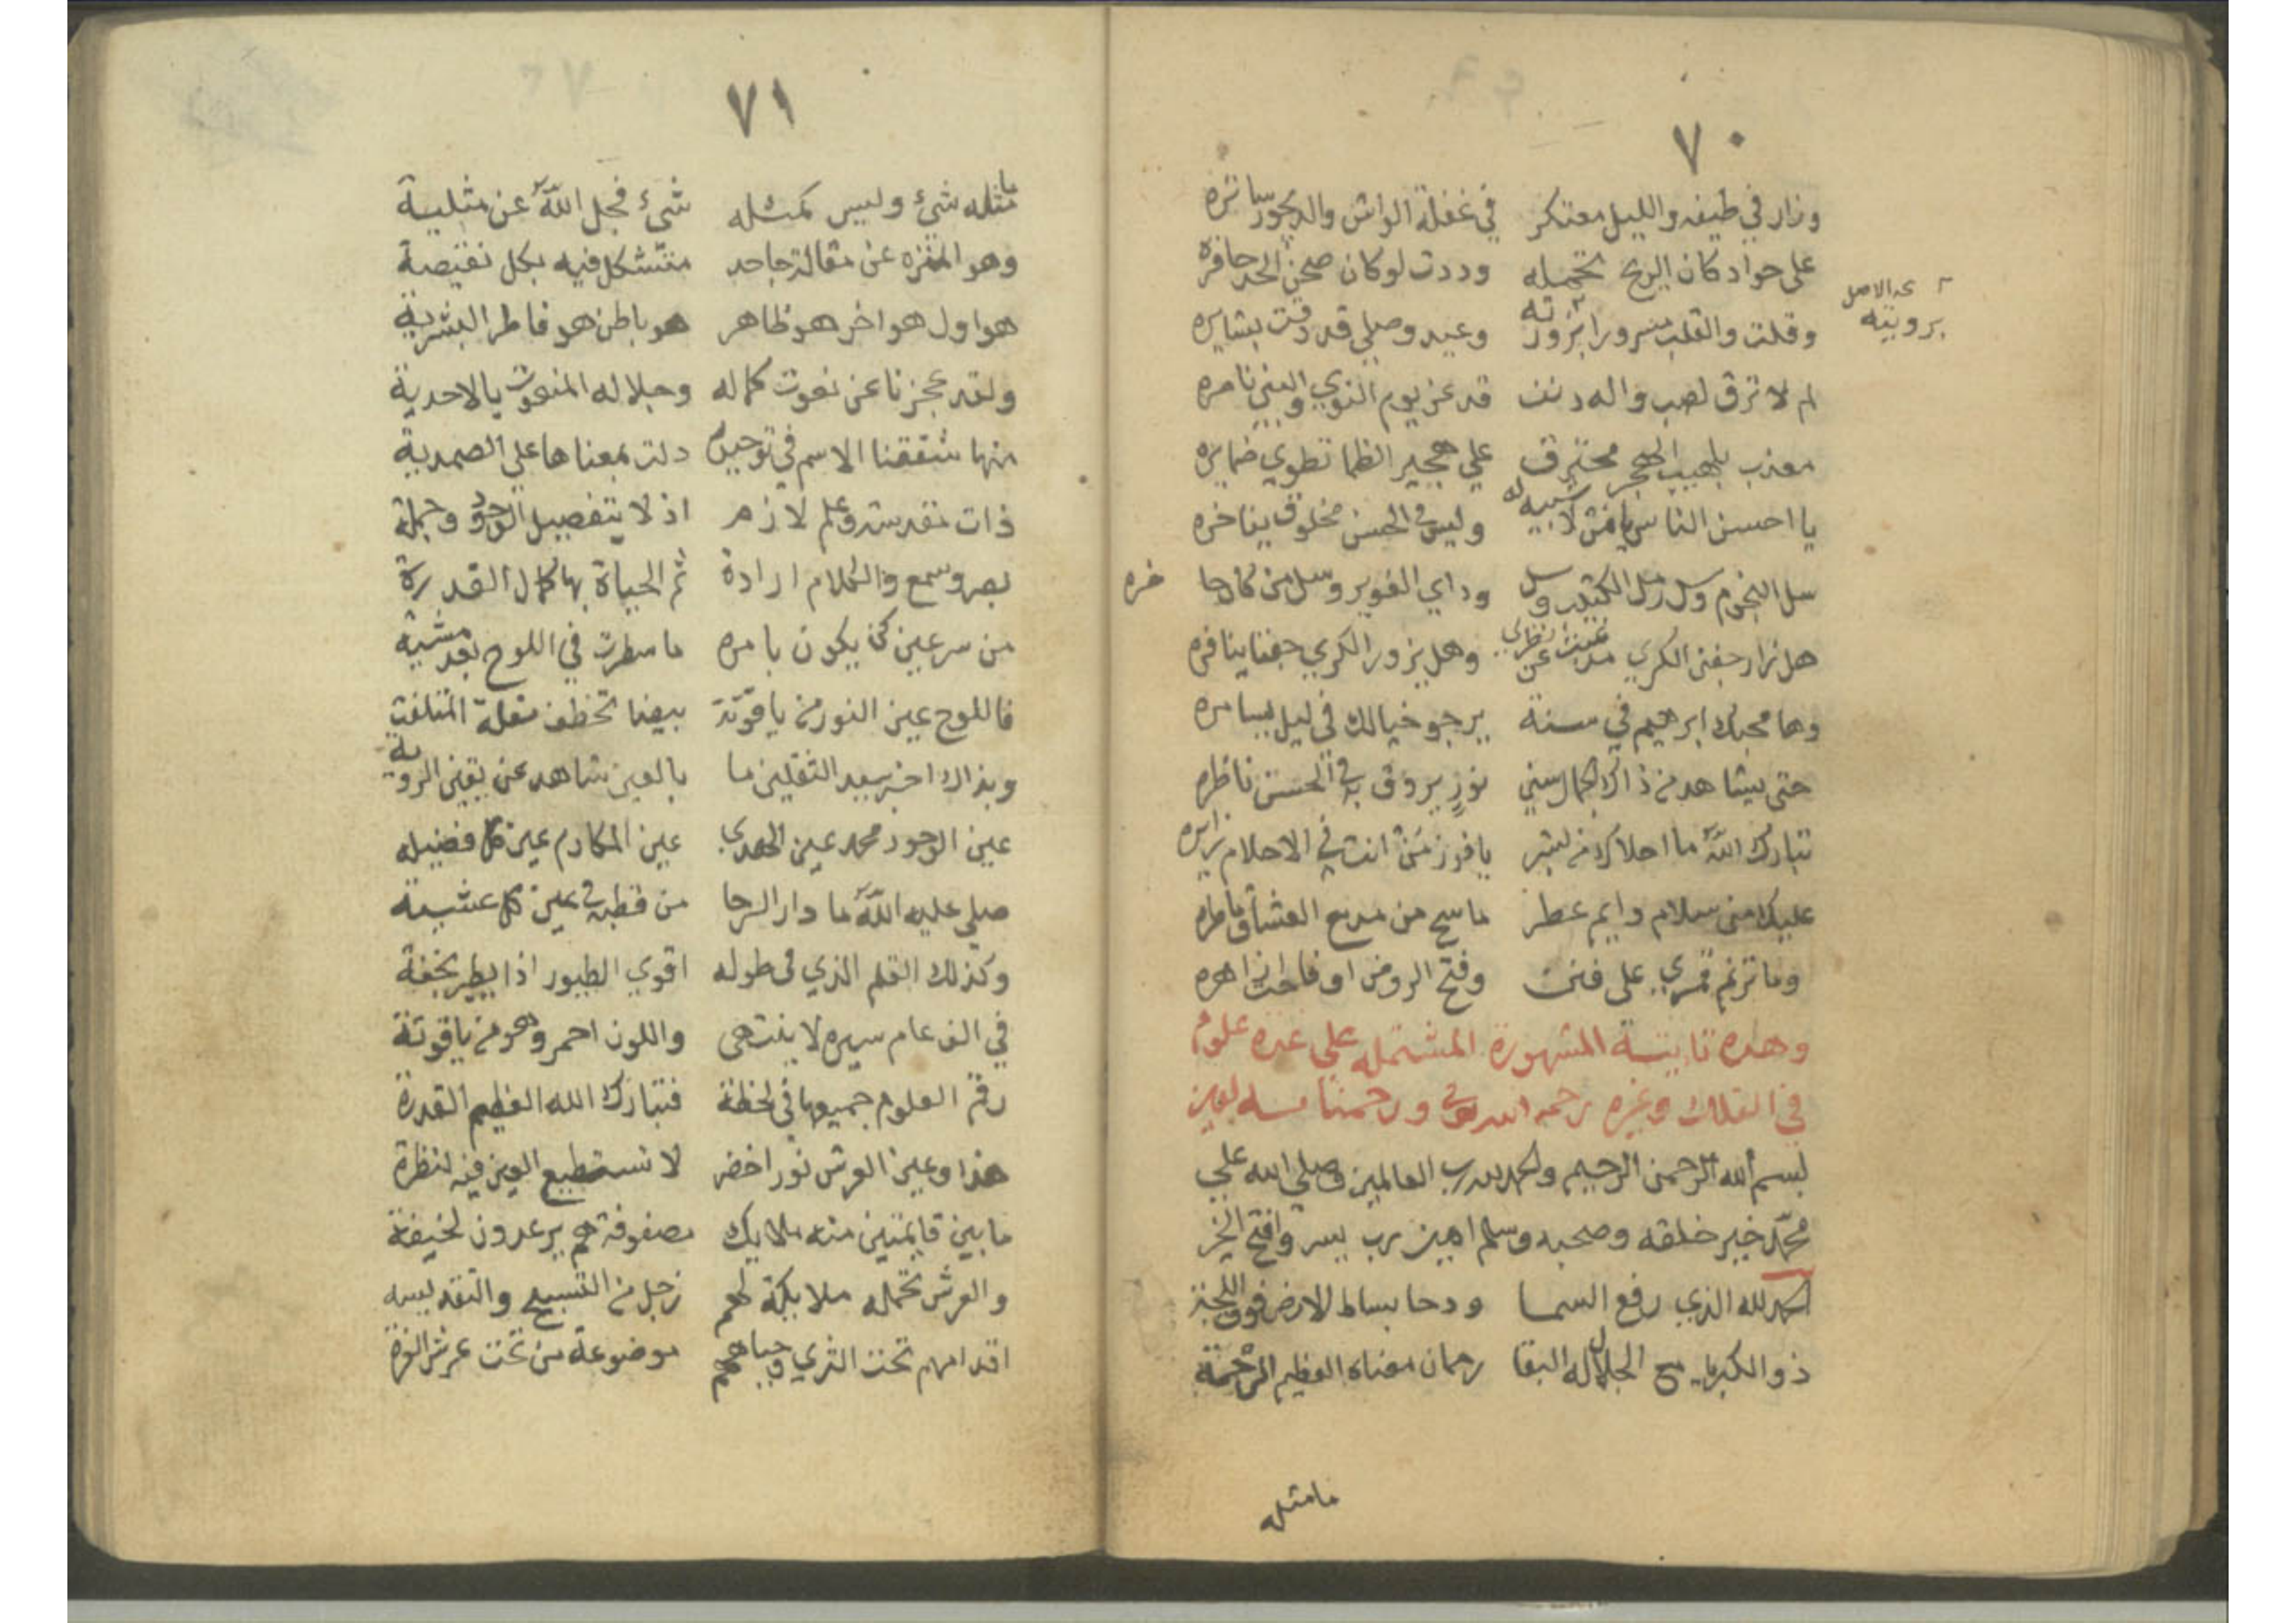 ٧٠
وزار في طيفه والليل معتكر في غفلة الواش والديجور ساتره
على جواد كان الريح تحمله وددت لو كان صحن الخد حافره
وقلت والقلب مسرورا بزورته وعيد وصلي قد دقت بشايره
عه الاصل
برويته
لم لا ترق لصب واله دنف قد عز يوم النوي والبين ناصره
معذب بلهيب الهجر محترق علي هجير الظما تطوي ضمايره
يا احسن الناس يامن لا شبيه له وليس في الحسن مخلوق يفاخره
سل النجوم وسل رمل الكثيب وسل وداي الغوير وسل من كان حا ضره
هل زار جفني الكري مذ غبت عن نظري وهل يزور الكري جفنا ينافره
وها محبك ابرهيم في سنة يرجو خيالك في ليل يسامره
حتى يشاهد من ذاك الجمال سني نور يروق بذا الحسن ناظره
تبارك الله ما احلاك من بشر يا فوز من انت في الاحلام زايره
عليك مني سلام دايم عطر ما سح من مدمع العشاق ماطره
وما ترنم قمري على فنن وفتح الروض او فاحت ازاهره
وهذه تاييتة المشهورة المشتمله علي عده علوم
في الفلك وغيره رحمه الله تعالى ورحمنا به امين
بسم الله الرحمن الرحيم والحمد لله رب العالمين وصلي الله علي
محمد خير خلقه وصحبه وسلم امين رب يسر وافتح بالخير
الحمد لله الذي رفع السما ودحا بساط الارض فوق اللجة
ذو الكبرياء مع الجلال له البقا رحمان معناه العظيم الرحمة
مامثله
٧١
ما مثله شيء وليس كمثله شيء فجل الله عن مثلية
وهو المنزه عن مقالة جاحد متشكل فيه بكل نقيصة
هو اول هو اخر هو ظاهر هو باطن هو فاطر البشرية
ولقد عجزنا عن نعوت كماله وجلاله المنعوت بالاحدية
منها شققنا الاسم في توحيده دلت بمعناها علي الصمدية
ذات تقدست وعلم لازم اذ لا يتفصيل الوجود وجملة
بصر وسمع والكلام ارادة ثم الحياة بها كمال القدرة
من سر عين كن يكون بامره ما سطرت في اللوح بعد مشية
فاللوح عين النور من ياقوتة بيضا تخطف مقلة المتلفت
وبذاك اخبر سيد الثقلين ما بالعين شاهد عن يقين الروية
عين الوجود محمد عين الهدي عين المكارم عين كل فضيله
صلي عليه الله ما دار الرحا من قطبه في عين كل عشية
وكذلك القلم الذي في طوله اقوي الطيور اذا يطير بخفة
في الف عام سيره لا ينتهي واللون احمر وهو من ياقوتة
رقم العلوم جميعها في لحظة فتبارك الله العظيم القدرة
هذا وعين العرش نور اخضر لا تستطيع العين فيه لنظرة
ما بين قايمتين منه ملايك مصفوفة هم يرعدون لخيفة
والعرش تحمله ملايكة لهم زجل من التسبيح والتقديسه
اقدامهم تحت الثري وجباههم موضوعة من تحت عرش العزة